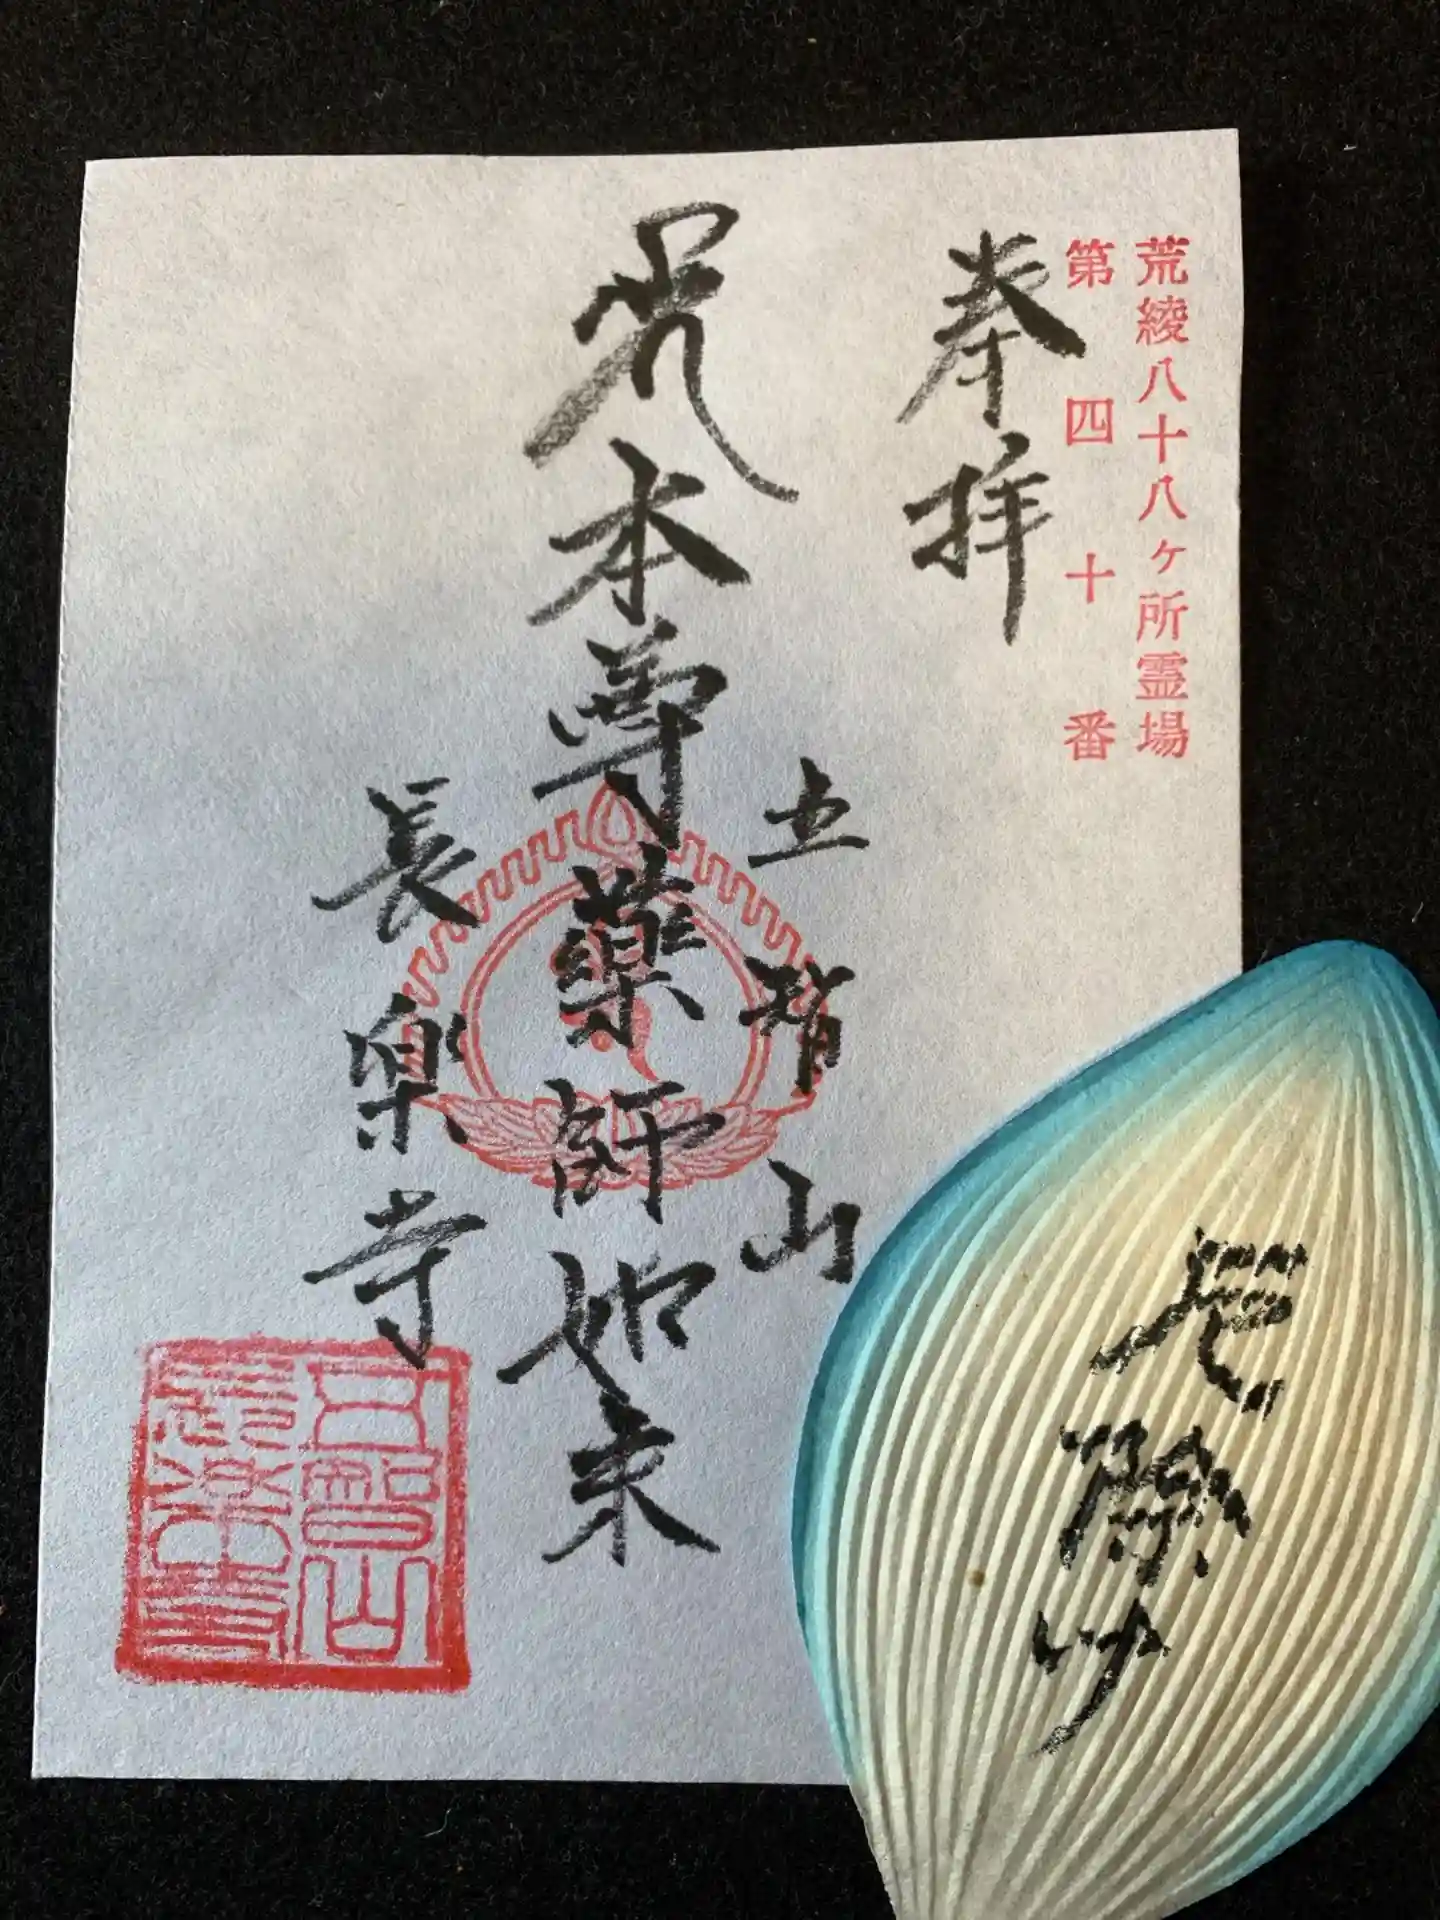 荒綾八十八ヶ所霊場
第四十番
奉拝
五智山
本尊薬師如来
長楽寺
五智山
長楽寺
除け